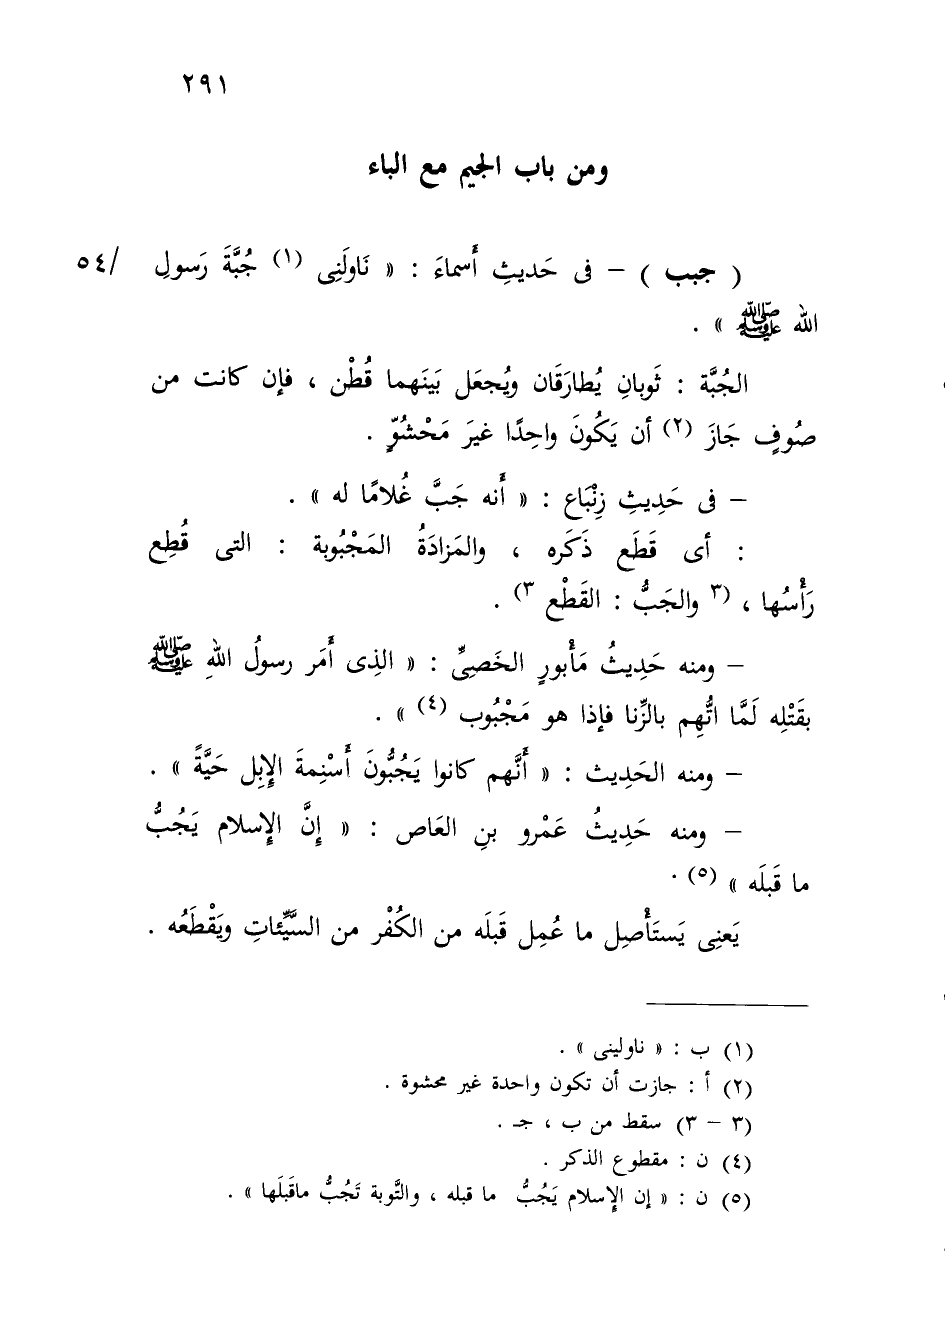 ٢٩١
ومن باب الجيم مع الباء
( جبب ) – فى حَديثِ أَسماءَ : « نَاولَنِى (١) جُبَّةَ رَسولِ /٥٤
الله ﷺ » .
الجُبَّة : ثَوبانِ يُطارَقَان ويُجعَل بَينَهما قُطْن ، فإن كانت من
صُوفٍ جَازَ (٢) أن يَكُونَ واحِدًا غيرَ مَحْشُوٍّ .
– فى حَدِيثِ زِنْبَاع : « أَنه جَبَّ غُلامًا له » .
: أى قَطَع ذَكَره ، والمَزادَةُ المَجْبُوبة : التى قُطِع
رَأْسُها ، (٣ والجَبُّ : القَطْع ٣) .
– ومنه حَدِيثُ مَأْبورٍ الخَصِىِّ : « الذِى أَمَر رسولُ اللهِ ﷺ
بقَتْلِه لَمَّا اتُّهِم بالزِّنا فإذا هو مَجْبُوب (٤) » .
– ومنه الحَدِيث : « أَنَّهم كانوا يَجُبُّونَ أَسْنِمةَ الإِبِل حَيَّةً » .
– ومنه حَدِيثُ عَمْرو بنِ العَاص : « إِنَّ الإِسلام يَجُبُّ
ما قَبلَه » (٥) .
يَعنِى يَستَأْصِل ما عُمِل قَبلَه من الكُفْر من السَّيِّئاتِ ويَقْطَعُه .
(١) ب : « ناولينى » .
(٢) أ : جازت أن تكون واحدة غير محشوة .
(٣ – ٣) سقط من ب ، جـ .
(٤) ن : مقطوع الذكر .
(٥) ن : « إن الإِسلام يَجُبُّ ما قبله ، والتَّوبة تَجُبُّ ماقَبلَها » .